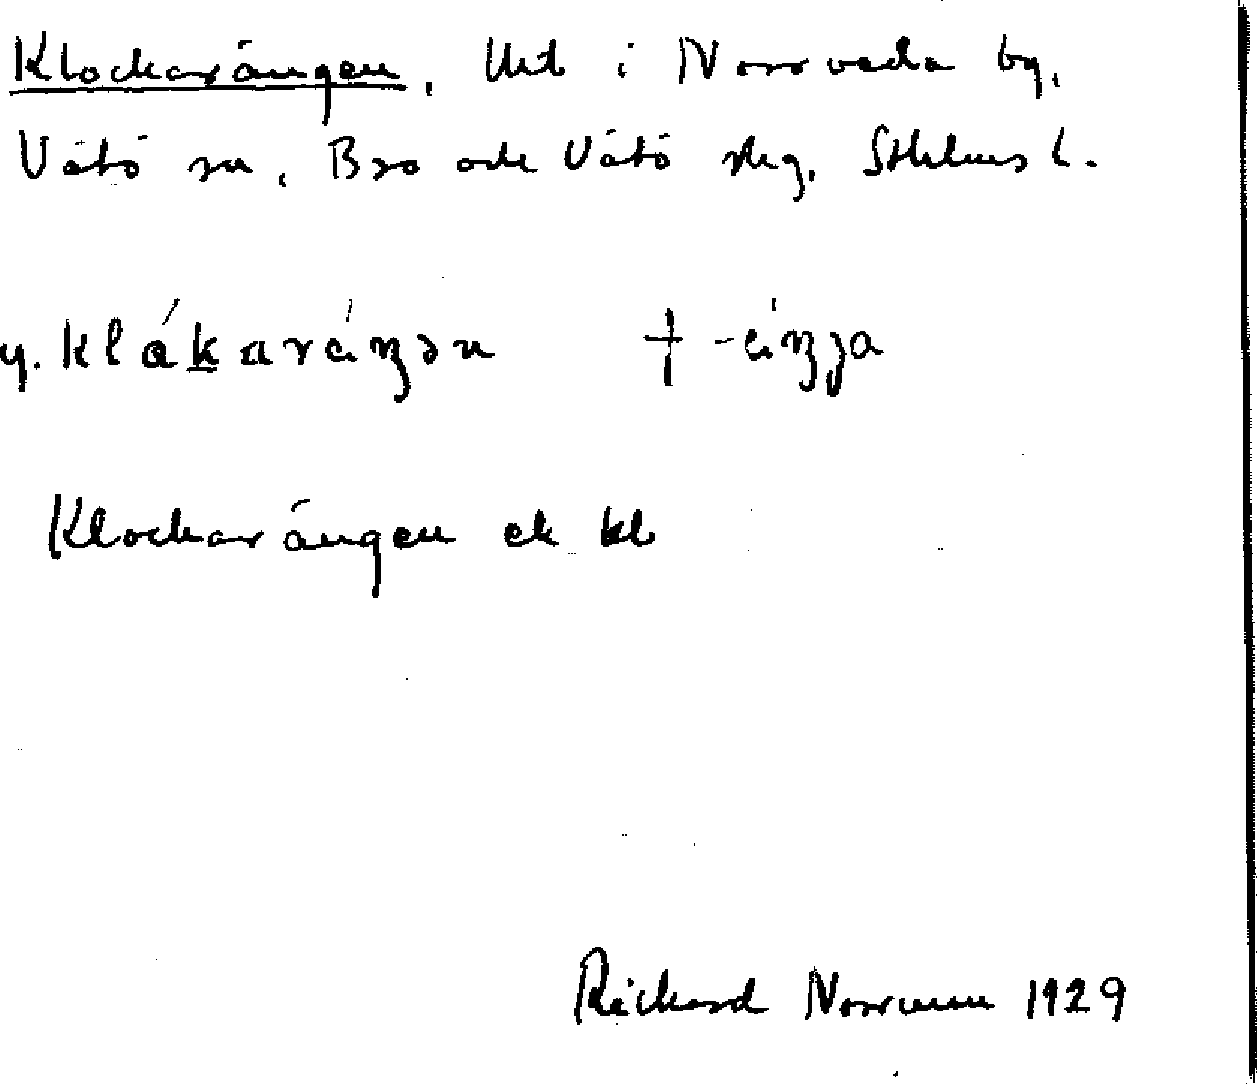 Klockarängen, Urb i Norrveda by,
Vätö sn, Bro och Vätö skg, Sthlms l.
y. klåkaräŋən † -äŋja
Klockarängen ek kb
Rickard Norrman 1929